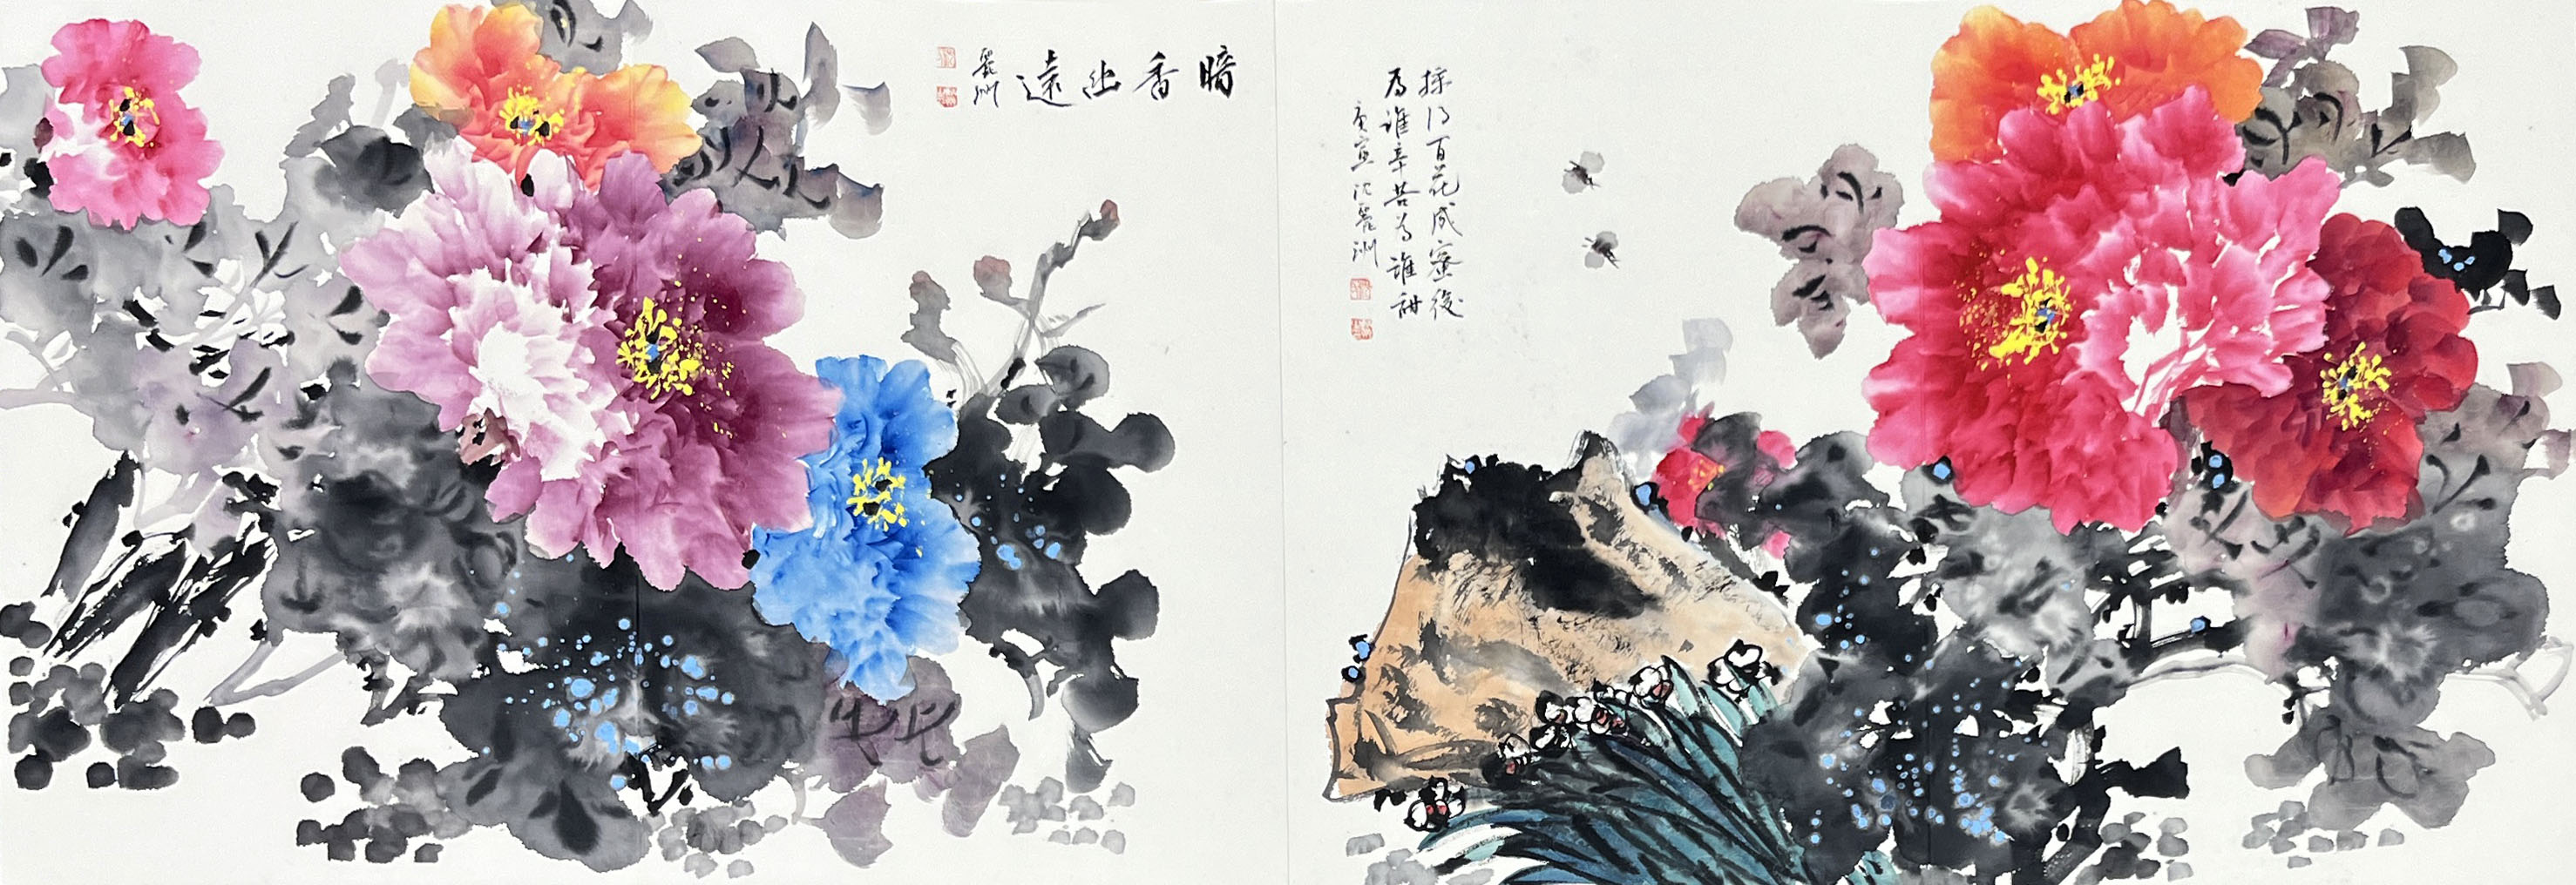 採得百花成蜜後
為誰辛苦為誰甜
庚寅沈麗洲
暗香幽遠
麗洲